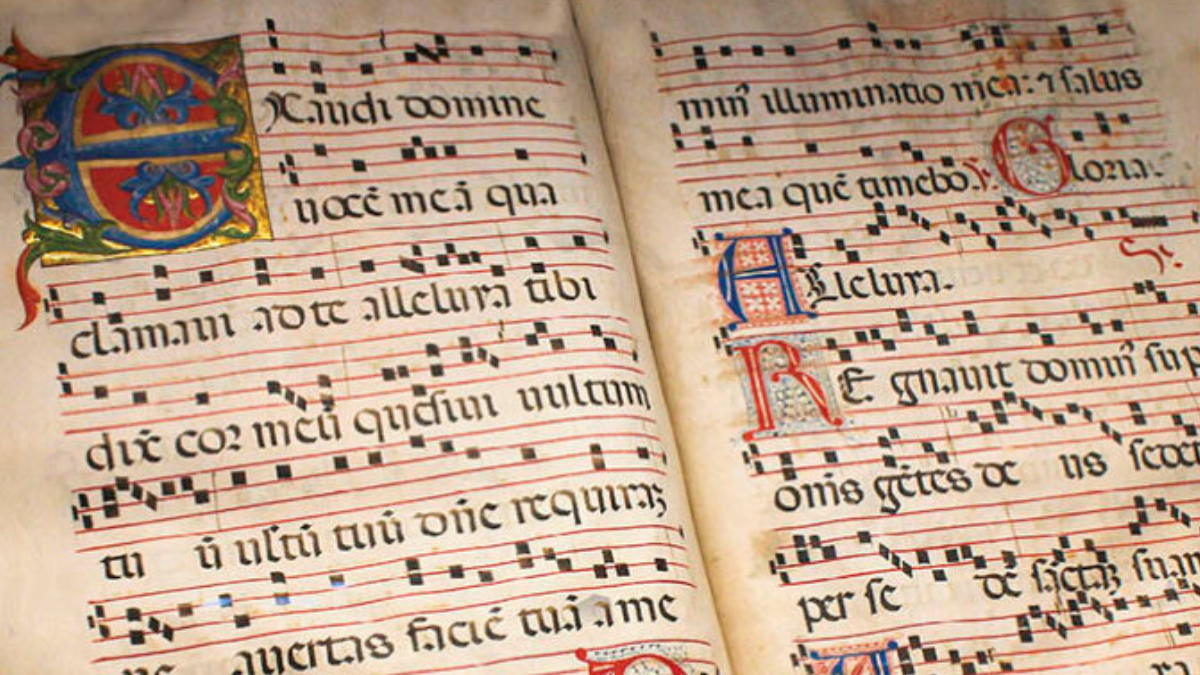 EXaudi domine
uocē meā qua
clamaui ad te alleluya tibi
dix̄ cor meū quesiui uultum
tu ū ultū tuū dn̄e requiraꝫ
ne auertas faciē tuā a me
min̄ illuminatio mea: ⁊ salus
mea quē timebo. Gloria.
ALleluya.
REgnauit domin̄ sup
om̄s gētes de us sedet
per se dē sc̄aꝫ suam